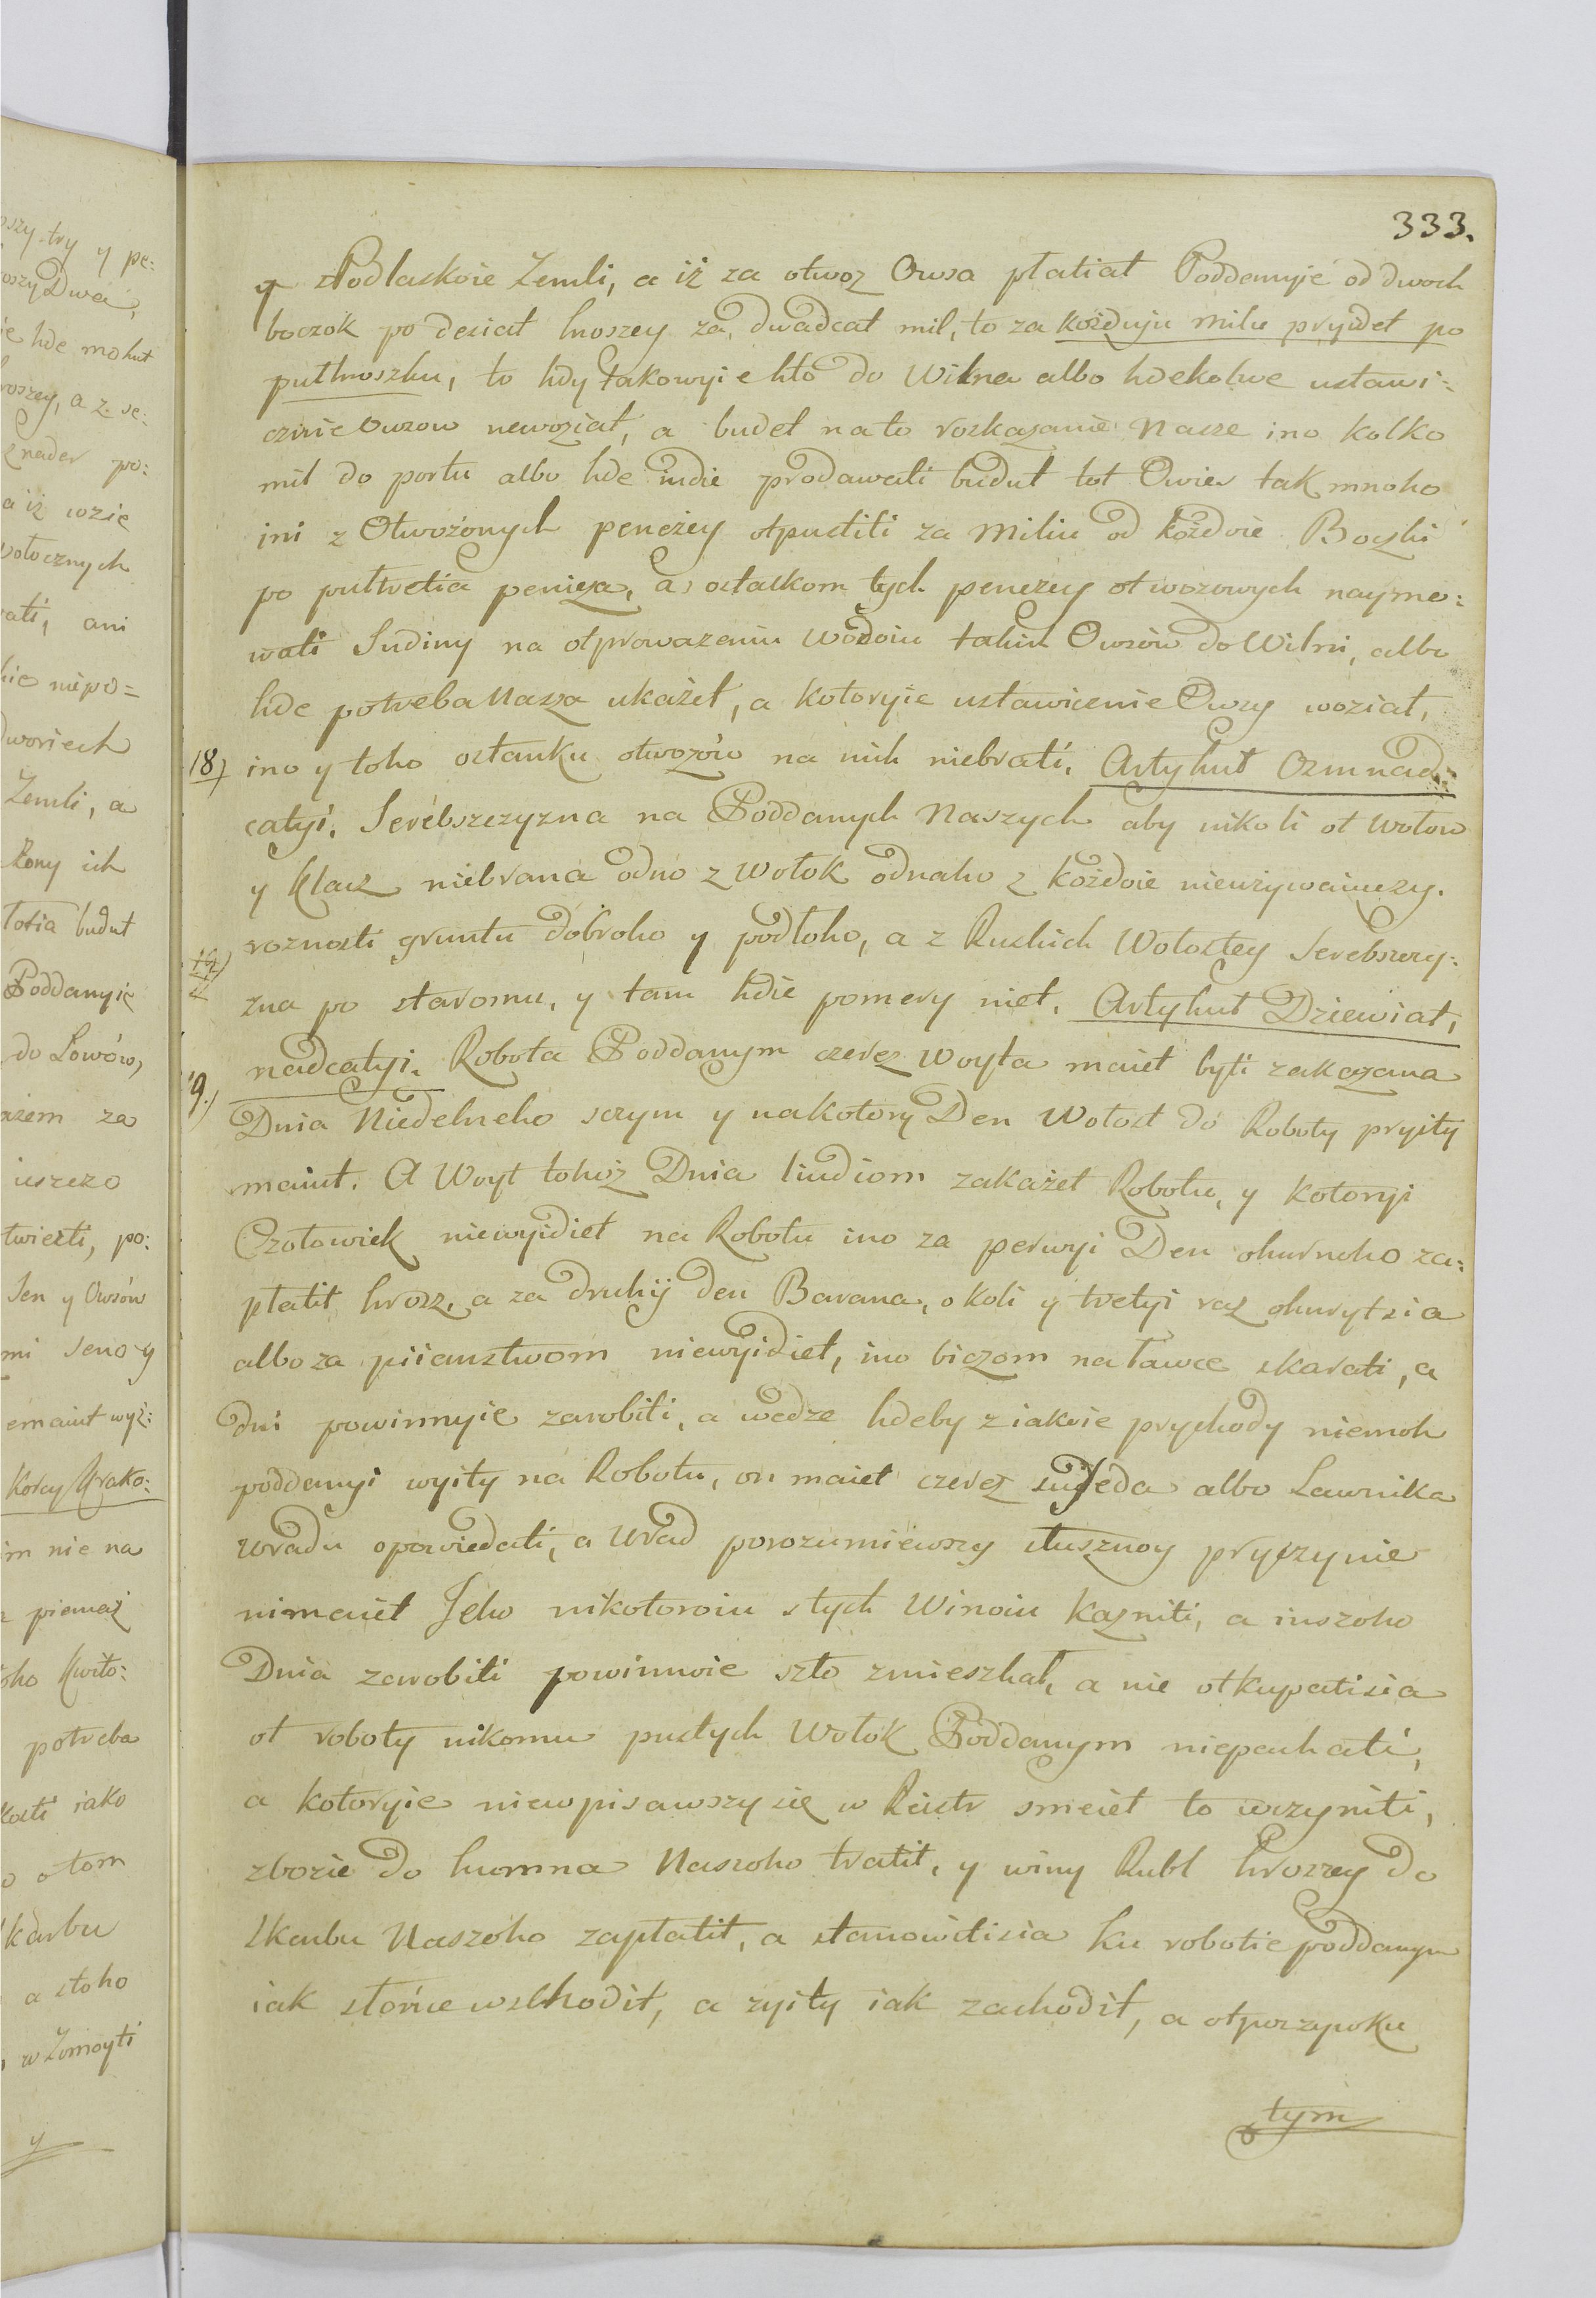 333.
y zPodlaskoie Zemli, a iż za otwoz Owsa płatiat Poddanyie od dwoch
boczok po desiat hroszey za dwadcat mil, to za kożduju milu pryidet po
pułhroszku, to hdy takowyie hto do Wilna albo hdekolwe ustawi=
cznie Owsow newoziat, a budet na to roskazanie Nasze ino kolko
mil do portu albo hde indie prodawati budut tot Owies tak mnoho
ini z Otwożonych penezey otpustiti za Miliu od kożdoie Boczki
po pułtretia peniza, a ostatkom tych penezey otwozowych naymo=
wati Sudiny na otprowazeniu Wodoiu takich Owsów do Wilni, albo
hde potreba Nasza ukażet, a kotoryie ustawicenie Owsy woziat,
18) ino y toho ostanku otwozów na nich niebrati. Artykuł Osmnad=
catyi. Serebszczyzna na Poddanych Naszych aby nikoli ot Wołow
y Klacz niebrana odno z Wołok odnaho z kożdoie nieuzywaiuczy.
roznosti gruntu dobroho y podłoho, a z Ruskich Wołostey Serebszczy=
19) zna po staromu, y tam hdie pomery niet. Artykuł Dziewiat,
19.) nadcatyi. Robota Poddanym czerez Woyta maiet byti zakazana
Dnia Niedelneho sczym y nakotory Den Wołost do Roboty pryity
maiut. A Woyt tohoż Dnia liudiom zakażet Robotu, y kotoryi
Czołowiek niewyidiet na Robotu ino za perwyi Den ohurneho za=
płatit hrosz, a za druhij den Barana, o koli y tretyi raz ohurytsia
albo za piianstwom niewyidiet, ino biczom na ławce skarati, a
dni powinnyie zarobiti, a wedze hdeby z iakoie prychody niemoh
poddanyi wyity na Robotu, on maiet czerez suseda albo Ławnika
Uradu opowiedati, a Urad porozumiewszy słusznoy pryczynie
nimaiet Jeho nikotoroiu s tych Winoiu Kazniti, a inszoho
Dnia zarobiti powinnoie szto zmieszkał, a nie otkupatisia
ot roboty nikomu pustych Wołok Poddanym niepachati,
a kotoryie niewpisawszy się w Reistr smeiet to uczyniti,
zbozie do humna Naszoho tratit, y winy Rubl hroszey do
Skarbu Naszoho zapłatit, a stanowitisia ku robotie poddanym
iak słońce wschodit, a zyity iak zachodit, a otpoczywku
tym